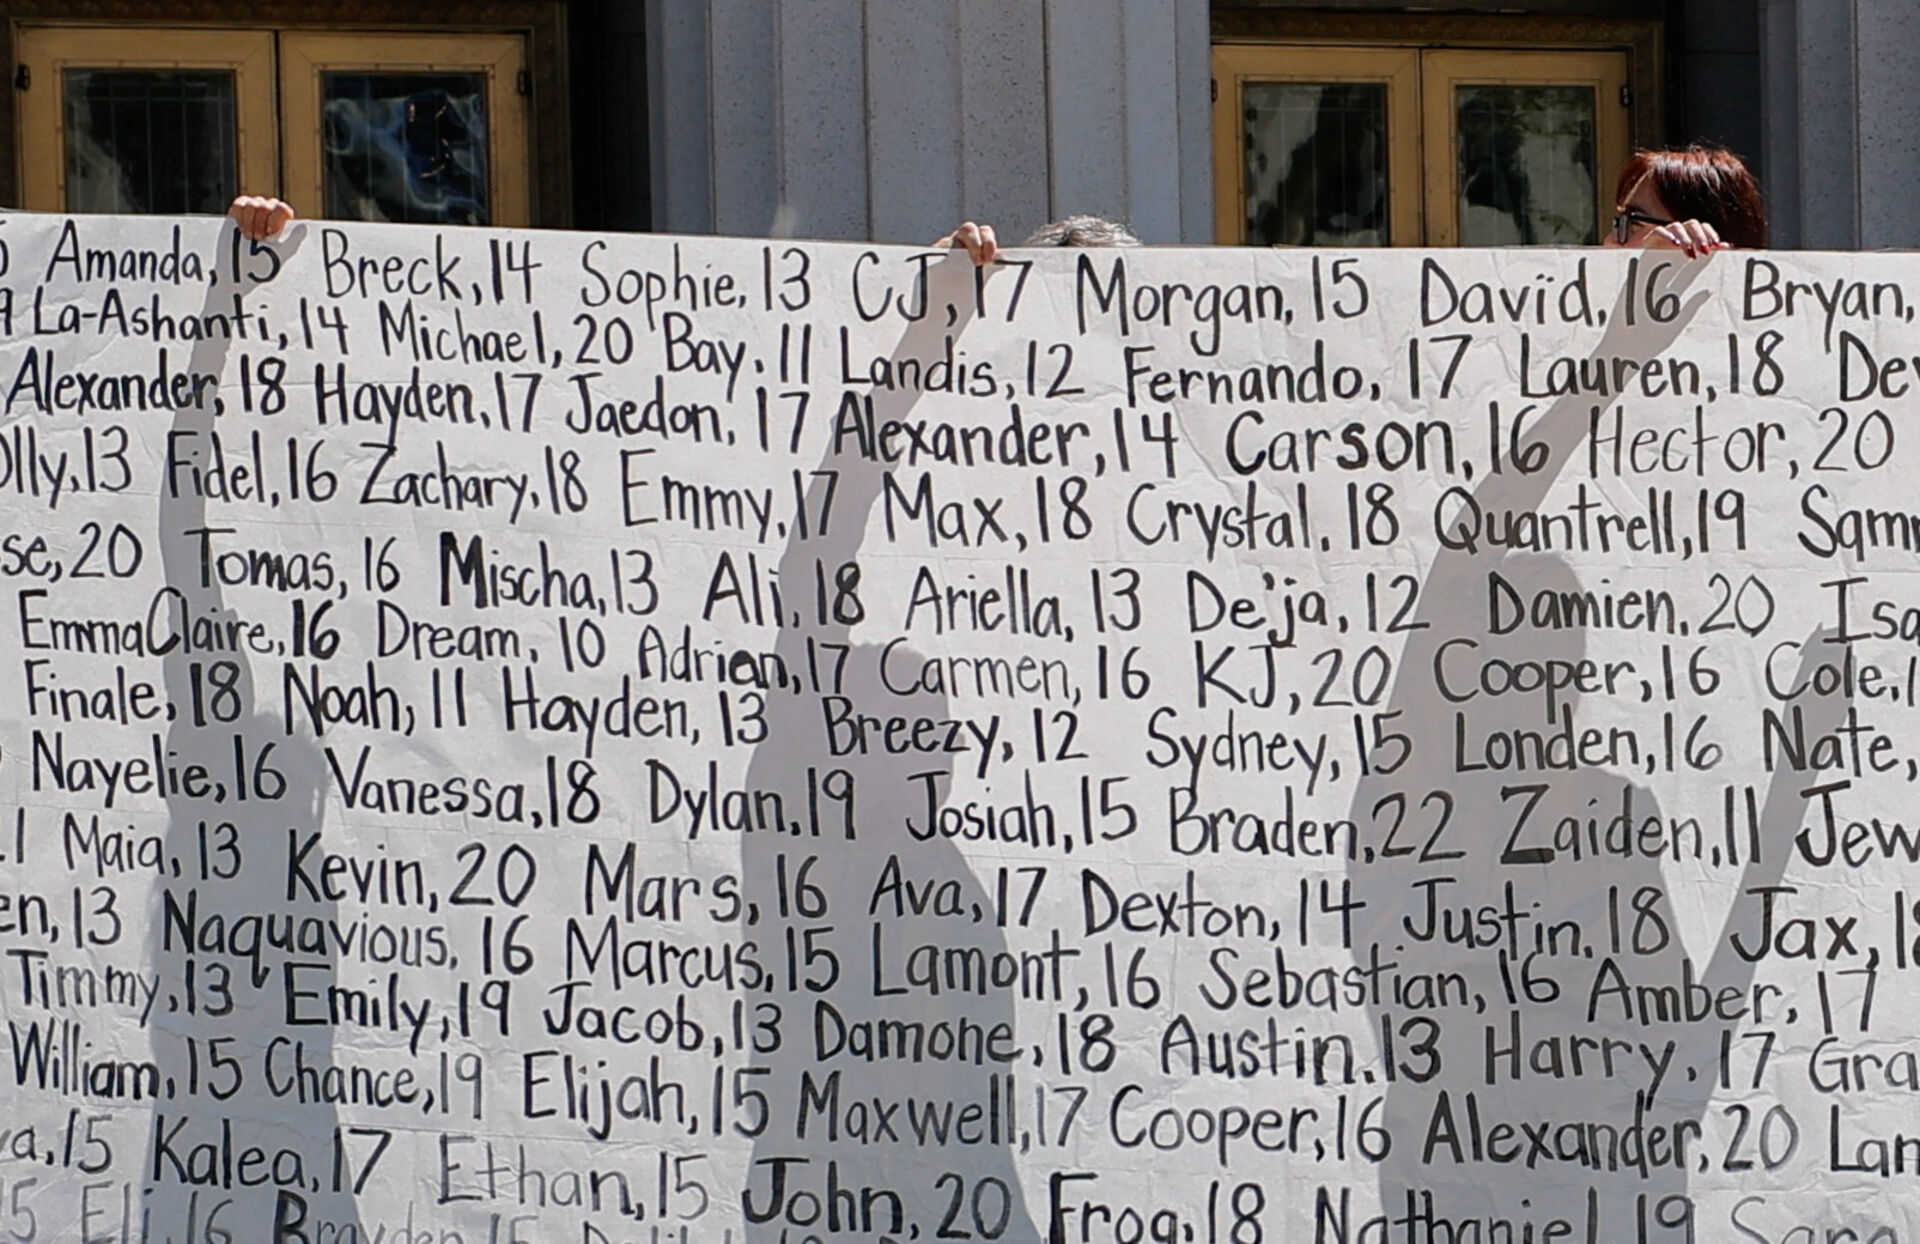 Amanda, 15 Breck, 14 Sophie, 13 CJ, 17 Morgan, 15 David, 16 Bryan,
La-Ashanti, 14 Michael, 20 Bay, 11 Landis, 12 Fernando, 17 Lauren, 18
Alexander, 18 Hayden, 17 Jaedon, 17 Alexander, 14 Carson, 16 Hector, 20
13 Fidel, 16 Zachary, 18 Emmy, 17 Max, 18 Crystal, 18 Quantrell, 19
se, 20 Tomas, 16 Mischa, 13 Ali, 18 Ariella, 13 De'ja, 12 Damien, 20
EmmaClaire, 16 Dream, 10 Adrian, 17 Carmen, 16 KJ, 20 Cooper, 16 Cole,
Finale, 18 Noah, 11 Hayden, 13 Breezy, 12 Sydney, 15 Londen, 16 Nate,
Nayelie, 16 Vanessa, 18 Dylan, 19 Josiah, 15 Braden, 22 Zaiden, 11 Jew
Maia, 13 Kevin, 20 Mars, 16 Ava, 17 Dexton, 14 Justin, 18 Jax,
en, 13 Naquavious, 16 Marcus, 15 Lamont, 16 Sebastian, 16 Amber, 17
Timmy, 13 Emily, 19 Jacob, 13 Damone, 18 Austin, 13 Harry, 17 Gra
William, 15 Chance, 19 Elijah, 15 Maxwell, 17 Cooper, 16 Alexander, 20 Lan
a, 15 Kalea, 17 Ethan, 15 John, 20 Frog, 18 Nathaniel, 19
Eli, 16 Brayden, 15